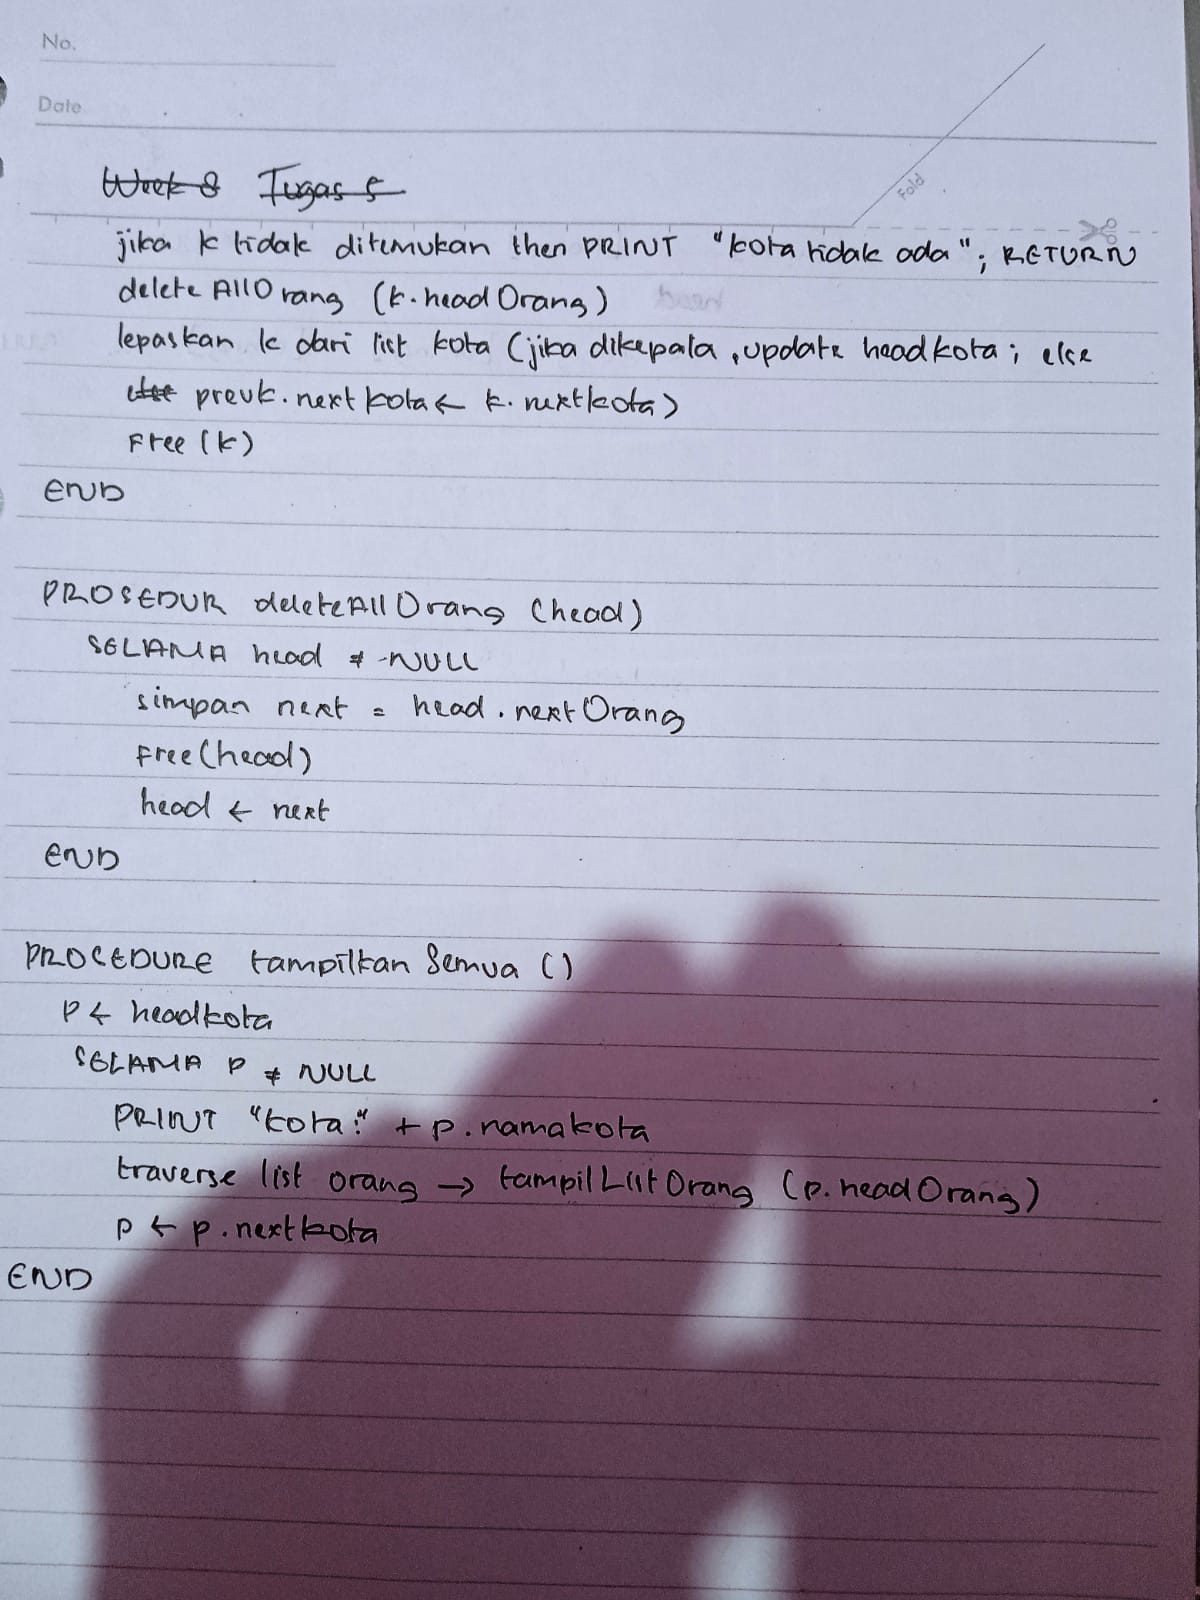 No.
Date
Fold
Week 8 Tugas 5
jika k tidak ditemukan then PRINT "kota tidak ada"; RETURN
delete All Orang (k.head Orang)
lepaskan k dari list kota (jika dikepala, update headkota; else
prevk.next kota ← k.nextkota)
Free (k)
END
PROSEDUR deleteAll Orang (head)
SELAMA head ≠ NULL
simpan next = head.next Orang
Free (head)
head ← next
END
PROCEDURE tampilkan Semua ()
P ← headkota
SELAMA P ≠ NULL
PRINT "kota:" + p.namakota
traverse list orang → tampil List Orang (p.head Orang)
p ← p.nextkota
END